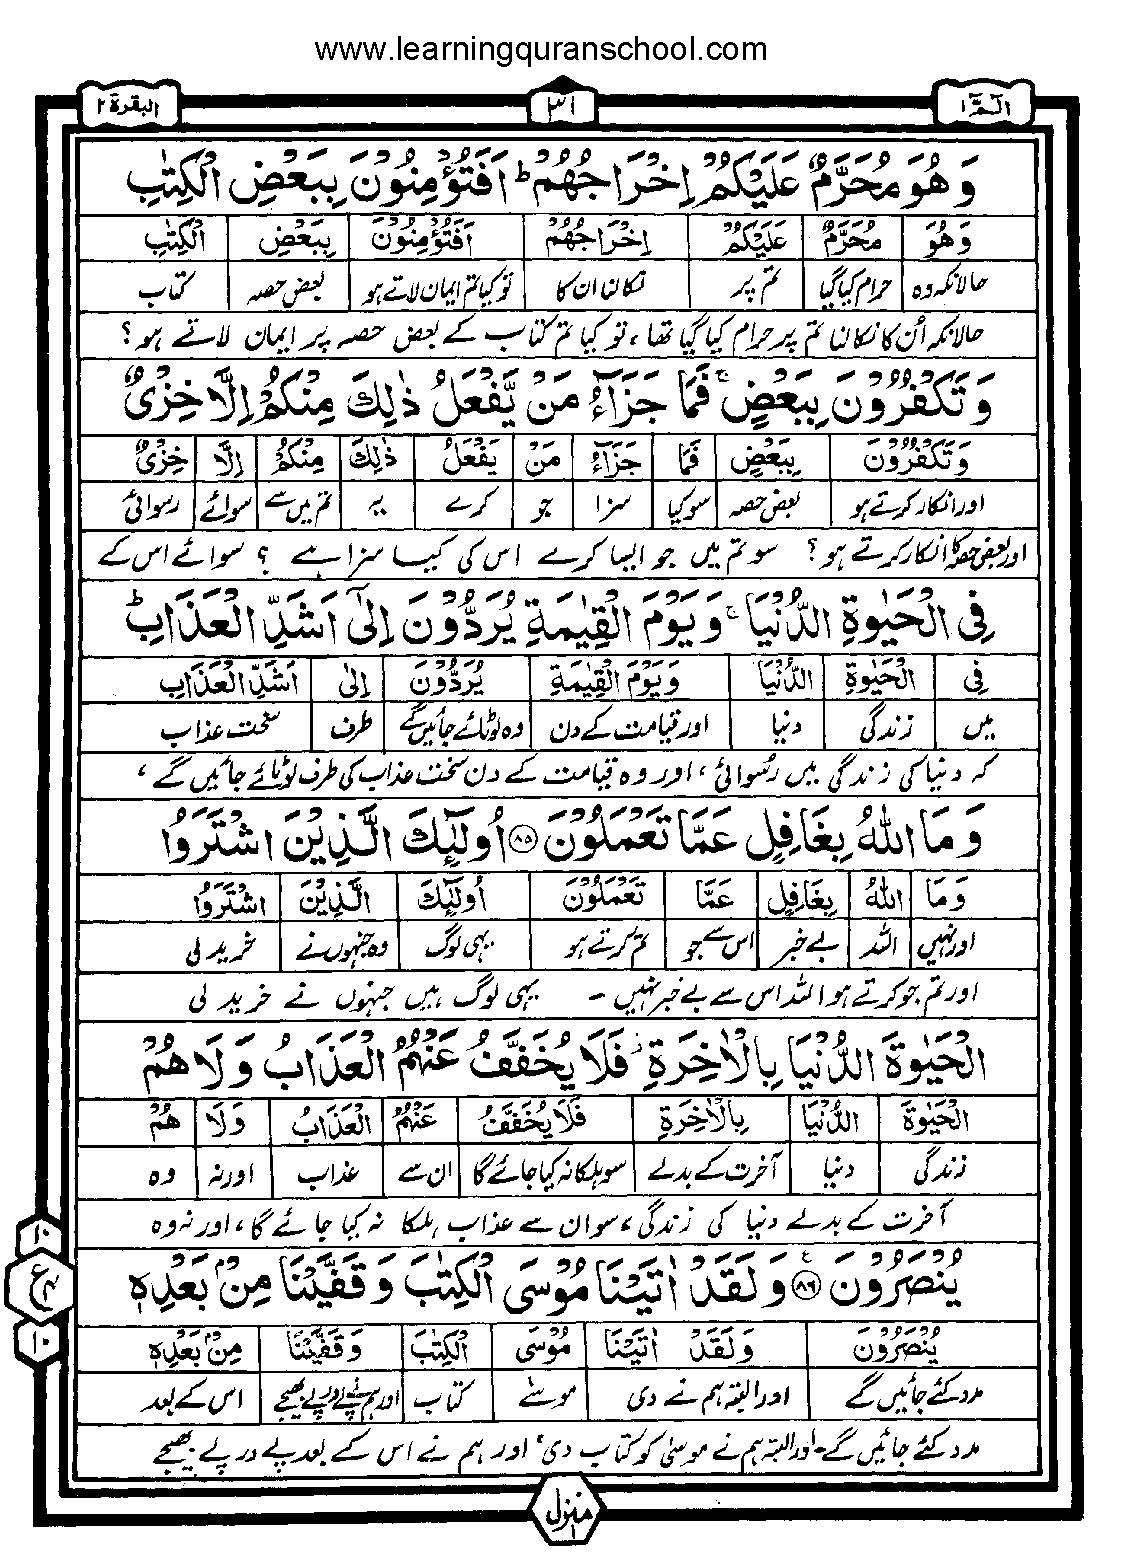 www.learningquranschool.com
الٓمّٓ ١ ٣١ البقرة ٢
وَهُوَ مُحَرَّمٌ عَلَيْكُمْ اِخْرَاجُهُمْ ؕ اَفَتُؤْمِنُوْنَ بِبَعْضِ الْكِتٰبِ
وَهُوَ مُحَرَّمٌ عَلَيْكُمْ اِخْرَاجُهُمْ اَفَتُؤْمِنُوْنَ بِبَعْضِ الْكِتٰبِ
حالانکہ وہ حرام کیا گیا تم پر نکالنا ان کا تو کیا تم ایمان لاتے ہو بعض حصہ کتاب
حالانکہ اُن کا نکالنا تم پر حرام کیا گیا تھا، تو کیا تم کتاب کے بعض حصہ پر ایمان لاتے ہو؟
وَتَكْفُرُوْنَ بِبَعْضٍ ۚ فَمَا جَزَآءُ مَنْ يَّفْعَلُ ذٰلِكَ مِنْكُمْ اِلَّا خِزْىٌ
وَتَكْفُرُوْنَ بِبَعْضٍ فَمَا جَزَآءُ مَنْ يَفْعَلُ ذٰلِكَ مِنْكُمْ اِلَّا خِزْىٌ
اور انکار کرتے ہو بعض حصہ سو کیا سزا جو کرے یہ تم میں سے سوائے رسوائی
اور بعض حصہ کا انکار کرتے ہو؟ سو تم میں جو ایسا کرے اس کی کیا سزا ہے؟ سوائے اس کے
فِى الْحَيٰوةِ الدُّنْيَا ۚ وَيَوْمَ الْقِيٰمَةِ يُرَدُّوْنَ اِلٰٓى اَشَدِّ الْعَذَابِ ؕ
فِى الْحَيٰوةِ الدُّنْيَا وَيَوْمَ الْقِيٰمَةِ يُرَدُّوْنَ اِلٰى اَشَدِّ الْعَذَابِ
میں زندگی دنیا اور قیامت کے دن وہ لوٹائے جائیں گے طرف سخت عذاب
کہ دنیا کی زندگی میں رُسوائی، اور وہ قیامت کے دن سخت عذاب کی طرف لوٹائے جائیں گے،
وَمَا اللّٰهُ بِغَافِلٍ عَمَّا تَعْمَلُوْنَ ﴿٨٥﴾ اُولٰٓئِكَ الَّذِيْنَ اشْتَرَوُا
وَمَا اللّٰهُ بِغَافِلٍ عَمَّا تَعْمَلُوْنَ اُولٰٓئِكَ الَّذِيْنَ اشْتَرَوُا
اور نہیں اللہ بے خبر اس سے جو تم کرتے ہو یہی لوگ وہ جنہوں نے خرید لی
اور تم جو کرتے ہو اللہ اس سے بے خبر نہیں - یہی لوگ ہیں جنہوں نے خرید لی
الْحَيٰوةَ الدُّنْيَا بِالْاٰخِرَةِ ۫ فَلَا يُخَفَّفُ عَنْهُمُ الْعَذَابُ وَلَا هُمْ
الْحَيٰوةَ الدُّنْيَا بِالْاٰخِرَةِ فَلَا يُخَفَّفُ عَنْهُمُ الْعَذَابُ وَلَا هُمْ
زندگی دنیا آخرت کے بدلے سو ہلکا نہ کیا جائے گا ان سے عذاب اور نہ وہ
آخرت کے بدلے دنیا کی زندگی، سو ان سے عذاب ہلکا نہ کیا جائے گا، اور نہ وہ
يُنْصَرُوْنَ ﴿٨٦﴾ ع وَلَقَدْ اٰتَيْنَا مُوْسَى الْكِتٰبَ وَقَفَّيْنَا مِنْۢ بَعْدِهٖ
١٠ ع ١٠
يُنْصَرُوْنَ وَلَقَدْ اٰتَيْنَا مُوْسَى الْكِتٰبَ وَقَفَّيْنَا مِنْۢ بَعْدِهٖ
مدد کئے جائیں گے اور البتہ ہم نے دی موسیٰ کتاب اور ہم نے پے در پے بھیجے اس کے بعد
مدد کئے جائیں گے۔ اور البتہ ہم نے موسیٰ کو کتاب دی، اور ہم نے اس کے بعد پے در پے بھیجے
منزل ١